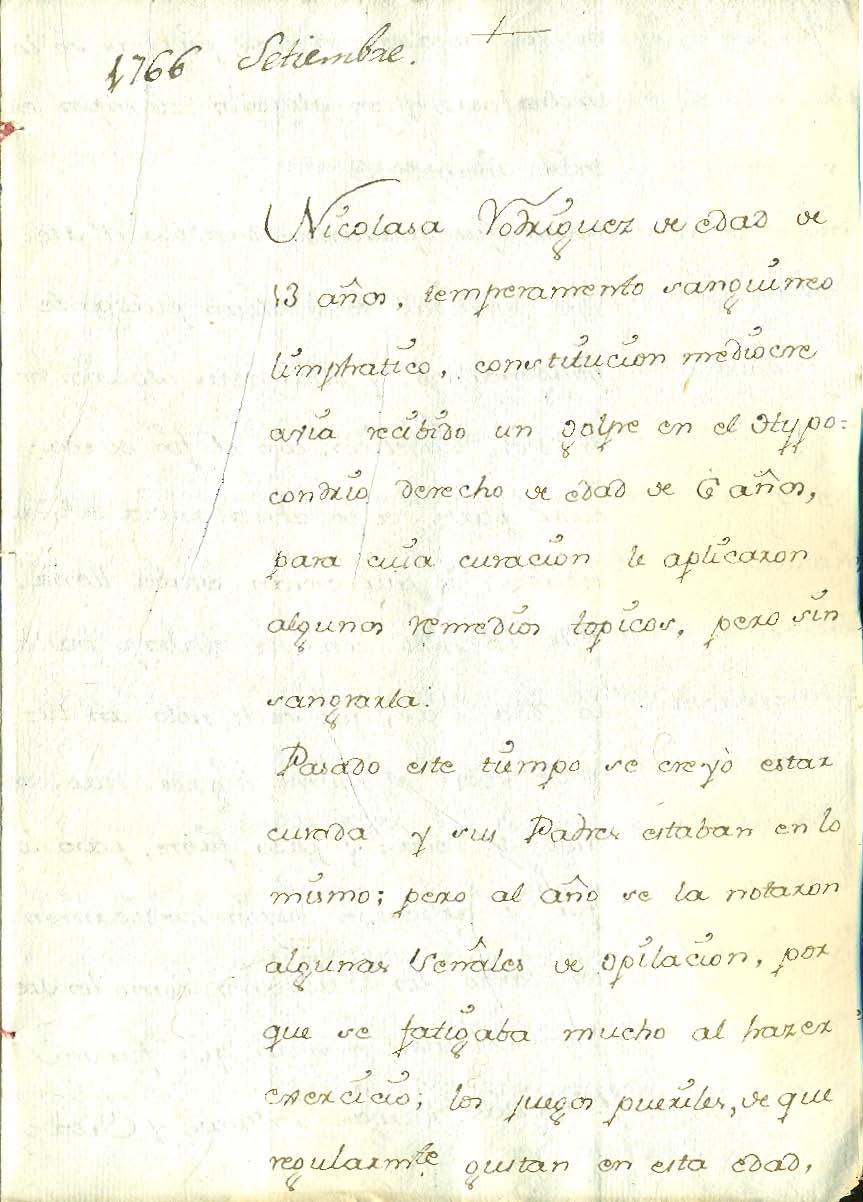 1766 Setiembre.
Nicolasa Rodriguez de edad de
13 años, temperamento sanguineo
limphatico, constitucion mediocre
avia recibido un golpe en el Hypo=
condrio derecho de edad de 6 años,
para cuia curacion le aplicaron
algunos remedios topicos, pero sin
sangrarla.
Pasado este tiempo se creyò estar
curada y sus Padres estaban en lo
mismo; pero al año se la notaron
algunas señales de opilacion, por
que se fatigaba mucho al hazer
exercicio; los juegos pueriles, de que
regularmte gustan en esta edad,